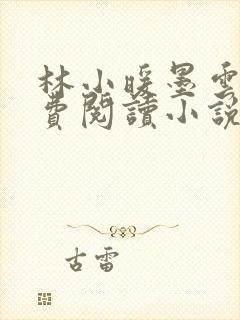 林小暖墨雲
費閱讀小說
古雷